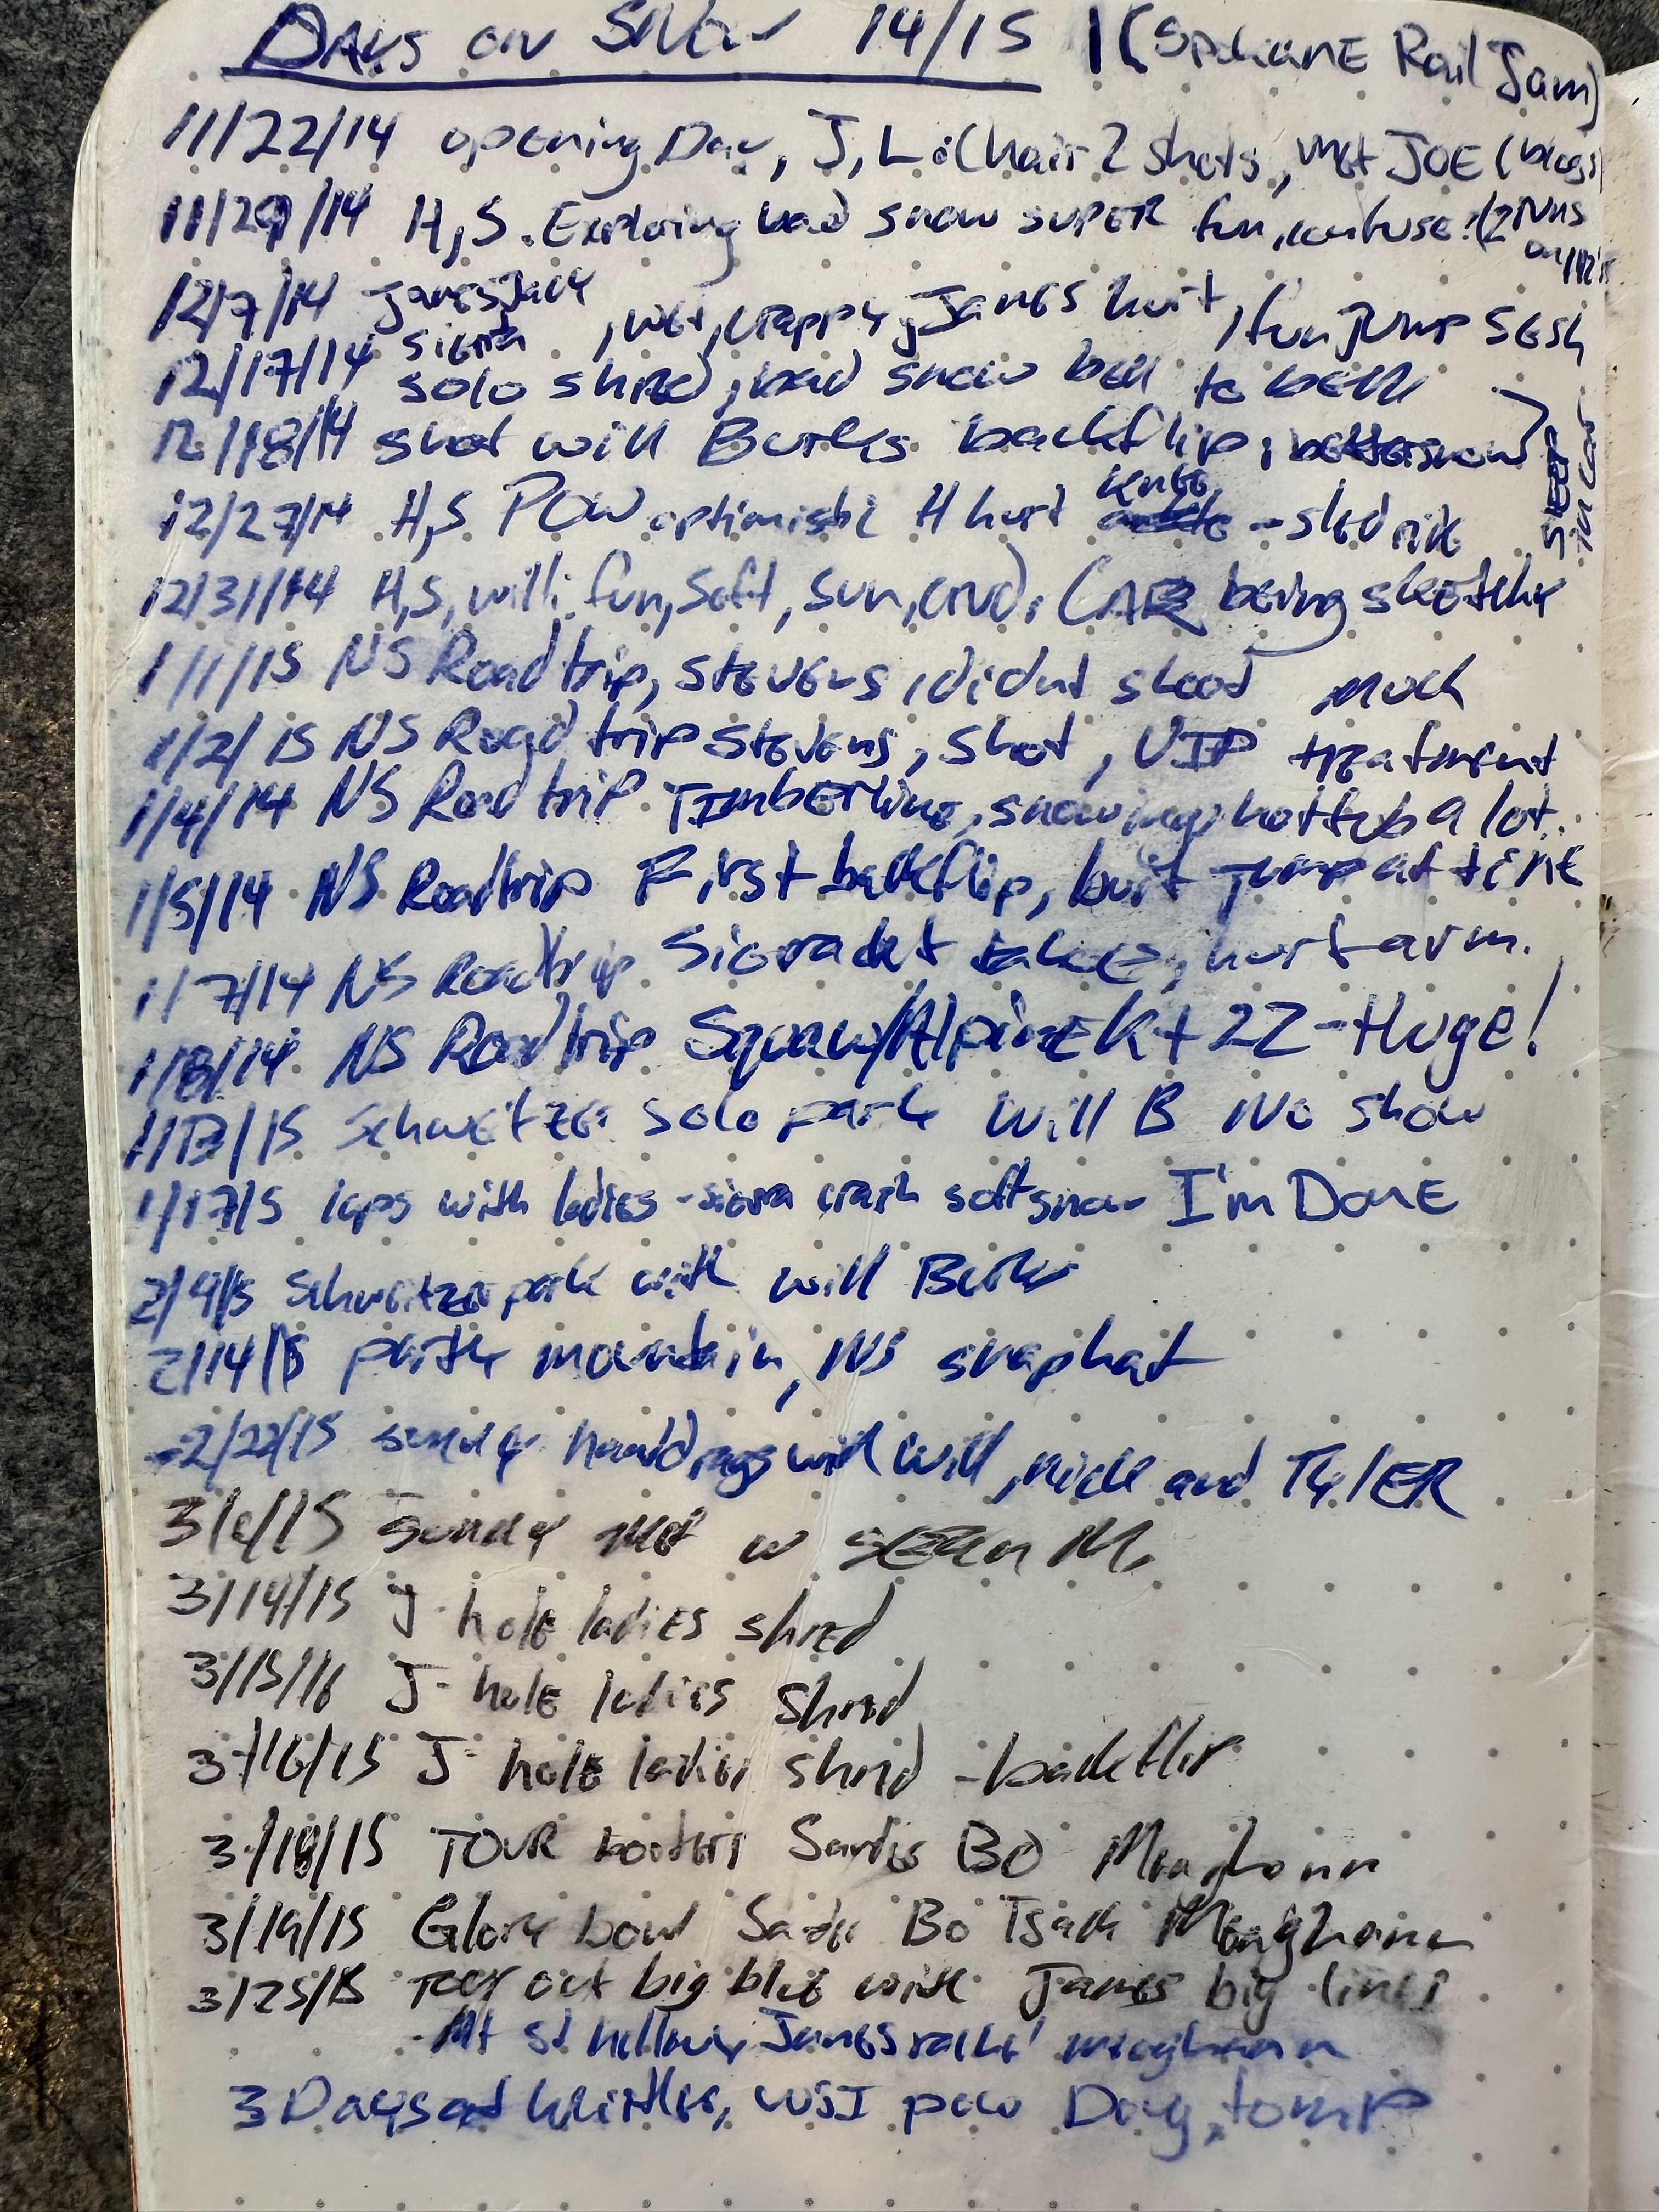 Days on Snow 14/15 1 (Spokane Rail Jam)
11/22/14 opening Day, J, L. Chair 2 shots, met JOE (blogs)
11/29/14 H, S. Exploring bad snow super fun, (2 runs on
12/7/14 James Jack Sierra, wet, crappy, James hurt, fun jump sesh
12/17/14 solo shred, bad snow bell to bell
12/18/14 shot will Burks backflip, better snow
Sleep in car
12/27/14 H,S POW optimistic H hurt knee - sled ride
12/31/14 H,S, will. fun, soft, sun, CAR being sketchy
1/1/15 NS Road trip, stevens, didnt shoot much
1/2/15 NS Road trip stevens, shot, VIP treatment
1/4/14 NS Road trip Timberline, snowing, hottub a lot.
1/5/14 NS Roadtrip First backflip, built jump at
1/7/14 NS Roadtrip. Sierra at tahoe, hurt arm.
1/8/14 NS Roadtrip Squaw/Alpine KT 22 - Huge!
1/13/15 Schweitzer solo park Will B No show
1/17/5 laps with ladies - sierra crash soft snow I'm Done
2/9/15 Schweitzer park with will Burks
2/14/15 party mountain, NS snapchat
2/22/15 sunday hand drags with Will, nick and TylER
3/6/15 Sunday met w Sean M.
3/14/15 J-hole ladies shred
3/15/16 J-hole ladies shred
3/16/15 J-hole ladies shred - backflip
3/18/15 TOUR booters Bo Meaghann
3/19/15 Glory bowl Bo Meaghann
3/25/15 Tour out big blue with James big lines
- Mt st hellens, James rache' meaghann
3 Days at whistler, WSI pow Day, tomp